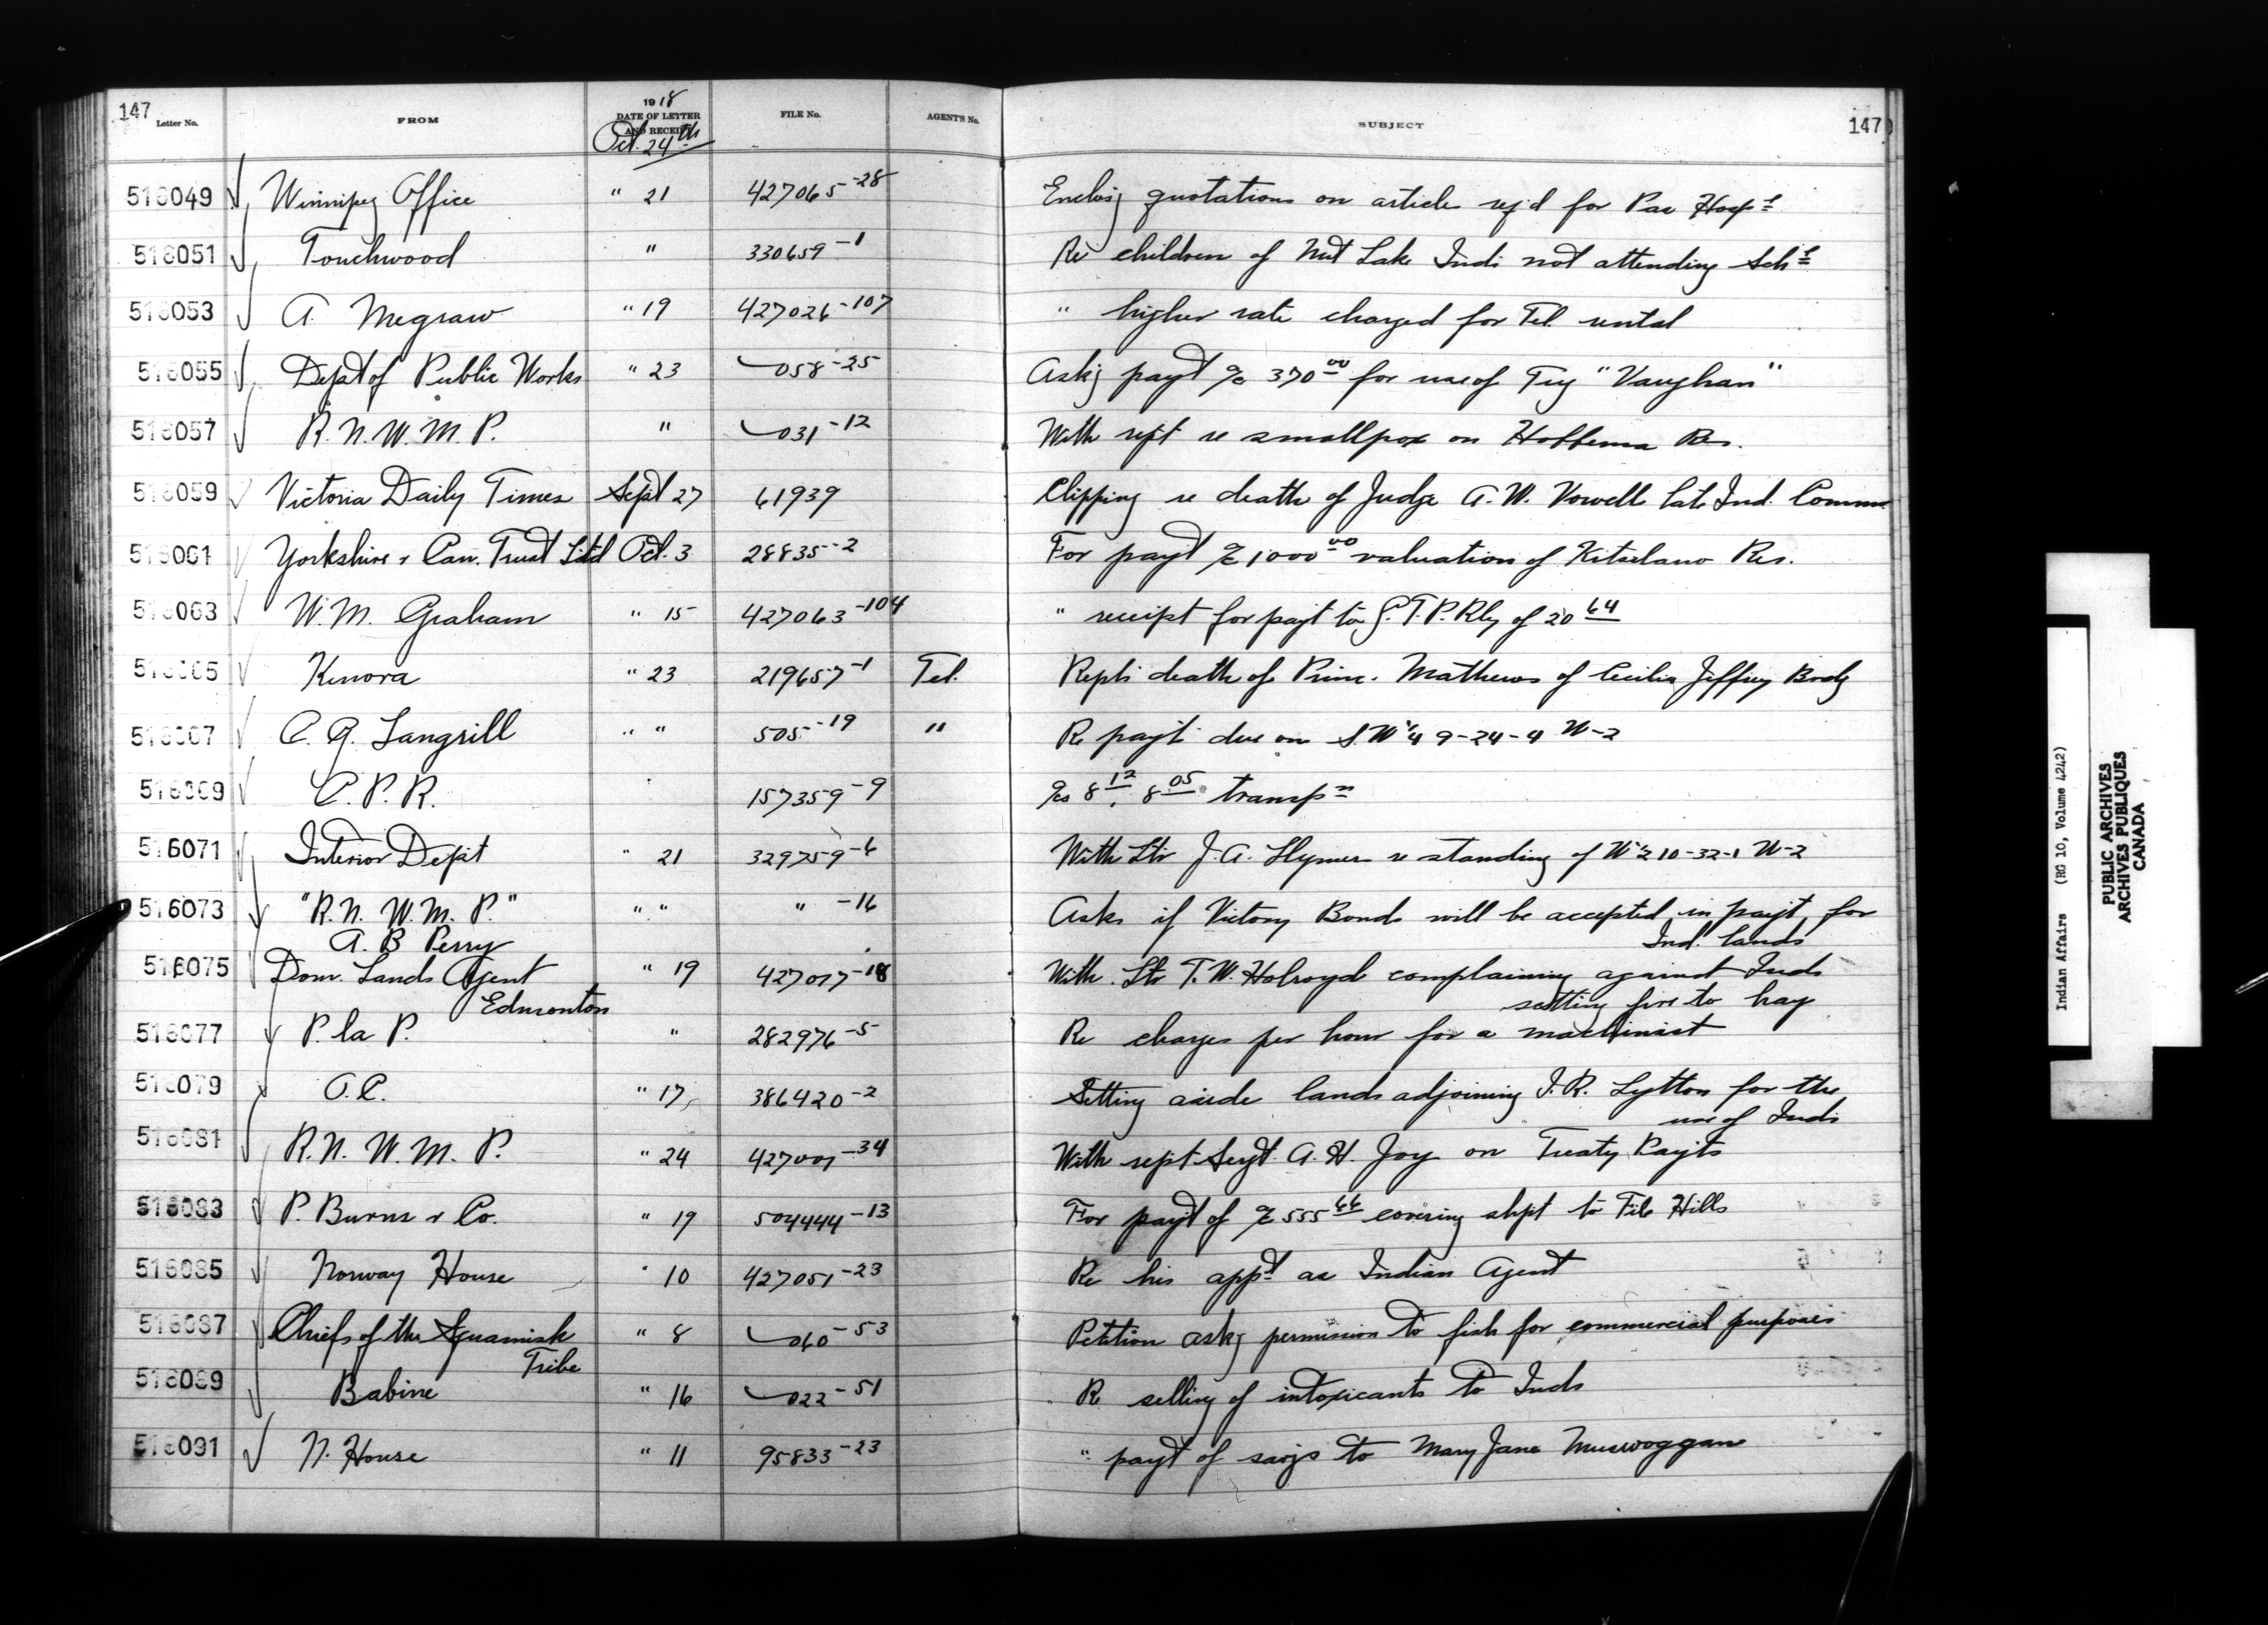 147 Letter No. FROM 1918 DATE OF LETTER AND RECEIPT FILE No. AGENT'S No. SUBJECT 147
Oct. 24th
516049 Winnipeg Office " 21 427065-28 Enclosg quotations on articles req'd for Pas Hospl
516051 Touchwood " 330659-1 Re children of Nut Lake Inds not attending Schl
516053 A. Megraw " 19 427026-107 " higher rate charged for Tel. rental
516055 Dept of Public Works " 23 058-25 Askg payt a/c 370.00 for use of Tug "Vaughan"
516057 R.N.W.M.P. " 031-12 With rept re smallpox on Hobbema Res.
516059 Victoria Daily Times Sept 27 61939 Clipping re death of Judge A.W. Vowell late Ind. Commr.
516061 Yorkshire & Can. Trust Ltd Oct. 3 28835-2 For payt a/c 1000.00 valuation of Kitselano Res.
516063 W.M. Graham " 15 427063-104 " receipt for payt to G.T.P. Rly of 20 64
516065 Kenora " 23 219657-1 Tel. Repts death of Princ. Mathews of Cecilia Jeffrey Brdg
516067 C. A. Langrill " " 505-19 " Re payt due on S.W 1/4 9-24-4 W-2
516069 C.P.R. 157359-9 a/cs 8 12, 8 05 transpn
516071 Interior Dept " 21 329759-6 With Ltr J.A. Slymer re standing of W 1/2 10-32-1 W-2
516073 "R.N.W.M.P." " " " -16 Asks if Victory Bonds will be accepted in payt for
A. B Perry Ind. lands
516075 Dom. Lands Agent " 19 427077-18 With Ltr T.W. Holroyde complaining against Inds
Edmonton setting fire to hay
516077 P. la P. " 282976-5 Re charges per hour for a machinist
516079 O.C. " 17 386420-2 Setting aside lands adjoining I.R. Lytton for the
use of Inds
516081 R.N.W.M.P. " 24 427001-34 With rept Sergt. A.H. Joy on Treaty Payts
516083 P. Burns & Co. " 19 504444-13 For payt of a/c 555 66 covering shpt to File Hills
516085 Norway House " 10 427051-23 Re his appt as Indian Agent
516087 Chiefs of the Squamish " 8 060-53 Petition askg permission to fish for commercial purposes
Tribe
516089 Babine " 16 022-51 Re selling of intoxicants to Inds
516091 N. House " 11 95833-23 " payt of savgs to Mary Jane Muswoggan
Indian Affairs (RG 10, Volume 4242)
PUBLIC ARCHIVES
ARCHIVES PUBLIQUES
CANADA